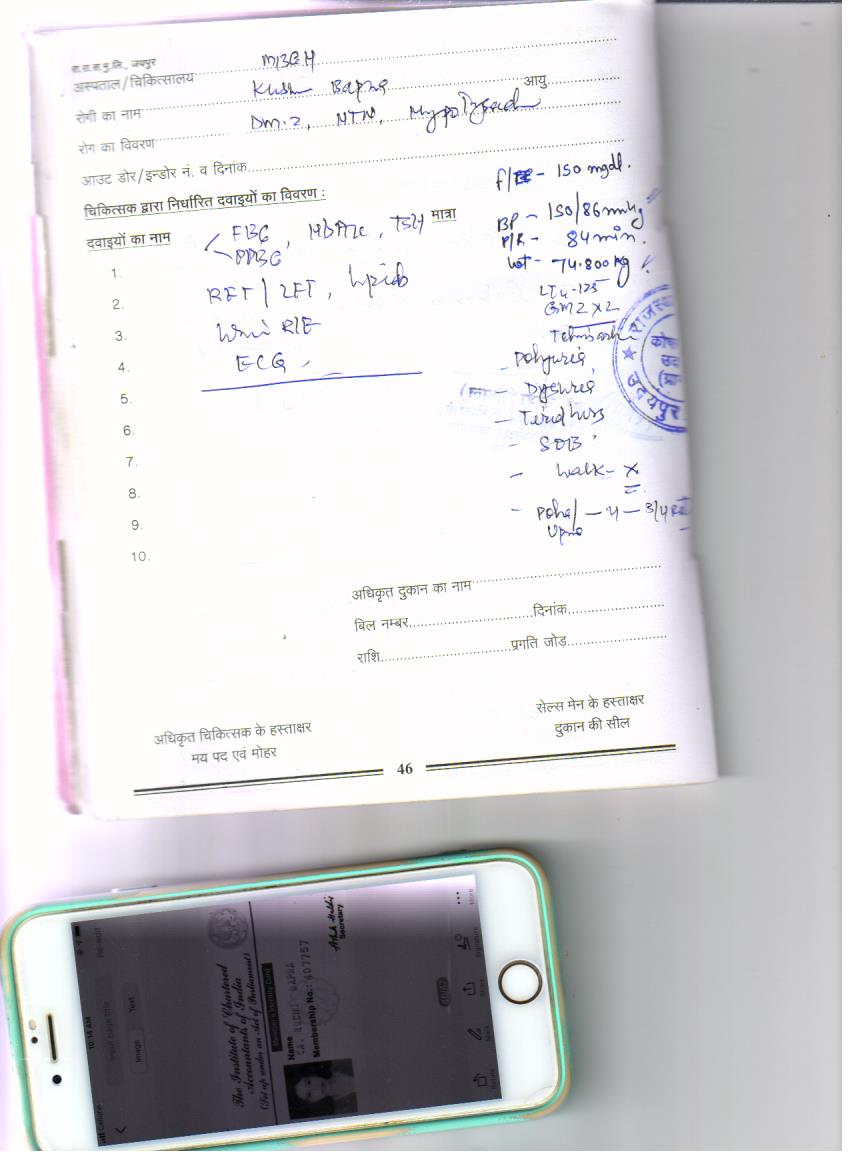 रा.रा.स.मु.लि., जयपुर
अस्पताल/चिकित्सालय MBGH
रोगी का नाम Kusum Bapna आयु
रोग का विवरण DM.2, HTN, Hypothyroid
आउट डोर/इन्डोर नं. व दिनांक
चिकित्सक द्वारा निर्धारित दवाइयों का विवरण :
दवाइयों का नाम मात्रा
FBG, HbA1c, TSH
PPBG
1.
2. RFT/LFT, Lipid
3. Urine R/E
4. ECG
5.
6.
7.
8.
9.
10.
- 150 mgdl.
BP - 150/86 mmHg
P/R - 84 min.
Wt - 74.800 kg
- Polyuria
- Dysuria
- Tiredness
- SOB
- Walk - X
- Poha/ - 4 - 3/4
Upma
राजस्थ
उदयपुर
अधिकृत दुकान का नाम
बिल नम्बर दिनांक
राशि प्रगति जोड़
अधिकृत चिकित्सक के हस्ताक्षर
मय पद एवं मोहर
सेल्स मेन के हस्ताक्षर
दुकान की सील
46
10:14 AM
Re-edit
Input page title
Image Text
The Institute of Chartered
Accountants of India
(Set up under an Act of Parliament)
Name
Membership No.: 407757
Secretary
More